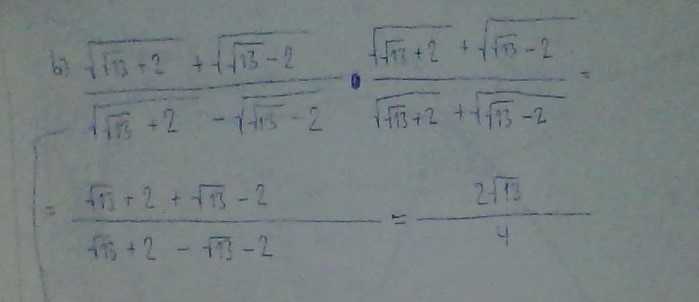 b) \frac{\sqrt{\sqrt{13}+2} + \sqrt{\sqrt{13}-2}}{\sqrt{\sqrt{13}+2} - \sqrt{\sqrt{13}-2}} \cdot \frac{\sqrt{\sqrt{13}+2} + \sqrt{\sqrt{13}-2}}{\sqrt{\sqrt{13}+2} + \sqrt{\sqrt{13}-2}} =
= \frac{\sqrt{13}+2+\sqrt{13}-2}{\sqrt{13}+2-\sqrt{13}-2} = \frac{2\sqrt{13}}{4}